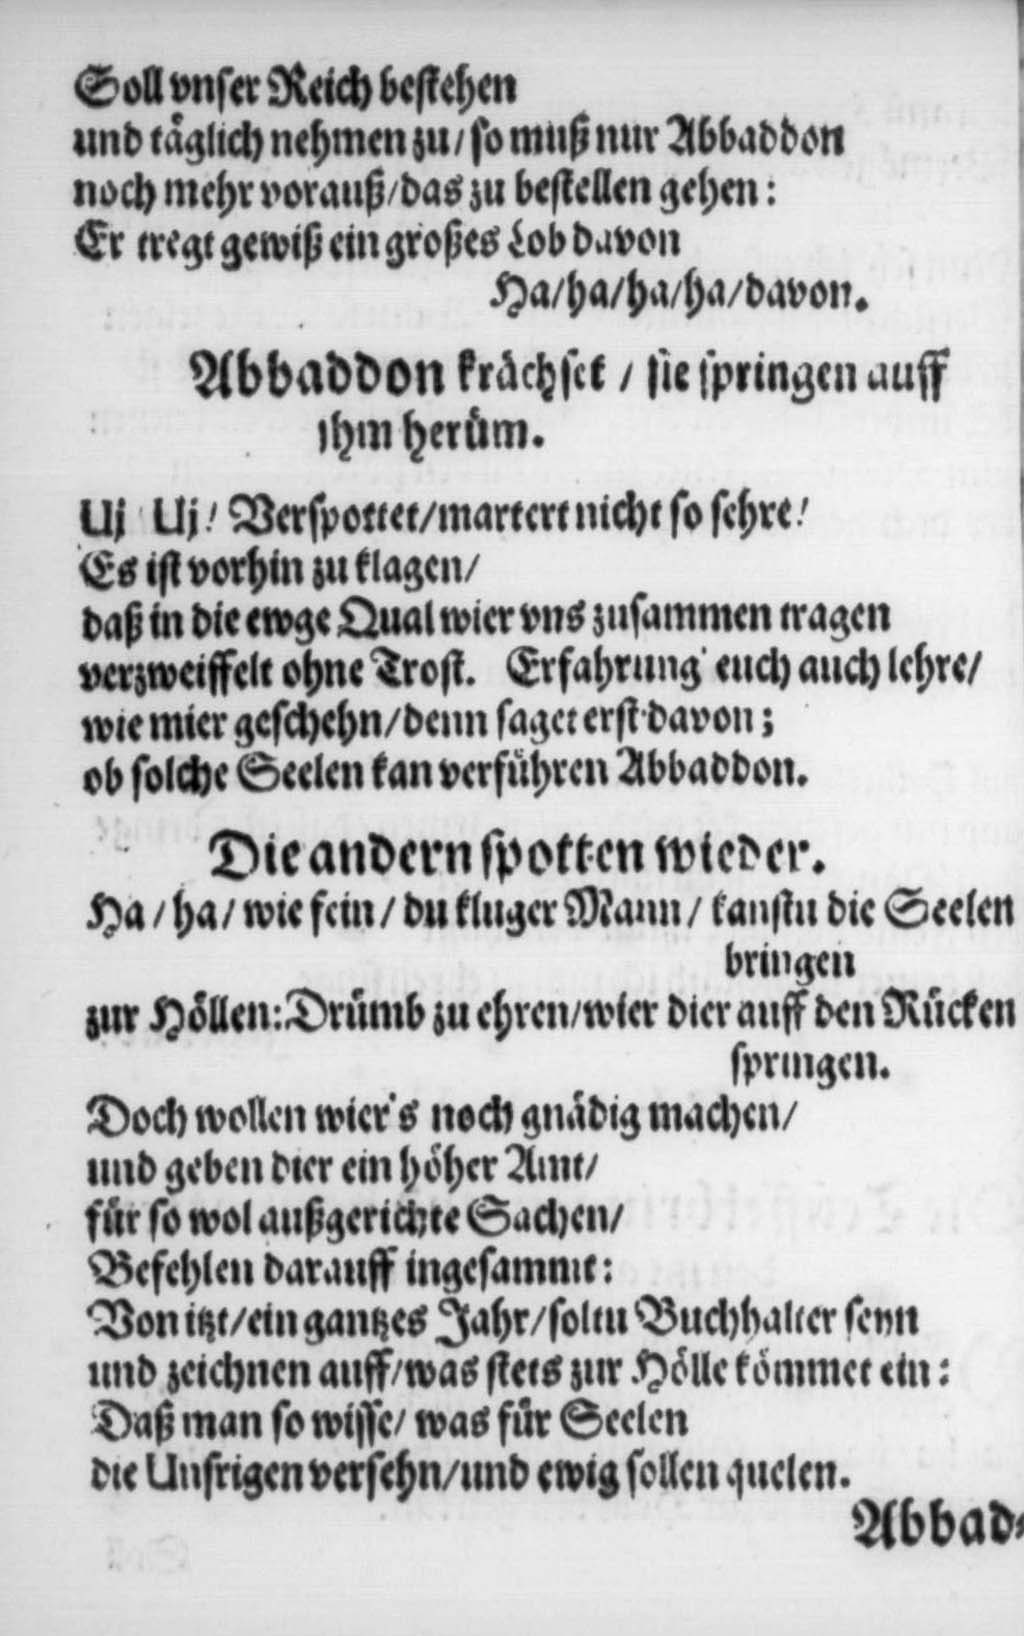 Soll vnser Reich bestehen
und täglich nehmen zu/ so muß nur Abbaddon
noch mehr vorauß/das zu bestellen gehen:
Er tregt gewiß ein großes Lob davon
Ha/ha/ha/ha/davon.
Abbaddon krächset / sie springen auff
ihm herüm.
Uj Uj! Verspottet/martert nicht so sehre!
Es ist vorhin zu klagen/
daß in die ewge Qual wier vns zusammen tragen
verzweiffelt ohne Trost. Erfahrung euch auch lehre/
wie mier geschehn/denn saget erst davon;
ob solche Seelen kan verführen Abbaddon.
Die andern spotten wieder.
Ha/ ha/ wie fein/ du kluger Mann/ kanstu die Seelen
bringen
zur Höllen: Drümb zu ehren/wier dier auff den Rücken
springen.
Doch wollen wier's noch gnädig machen/
und geben dier ein höher Amt/
für so wol außgerichte Sachen/
Befehlen darauff ingesammt:
Von itzt/ein gantzes Jahr/soltu Buchhalter seyn
und zeichnen auff/was stets zur Hölle kömmet ein:
Daß man so wisse/ was für Seelen
die Unsrigen versehn/und ewig sollen quelen.
Abbad-